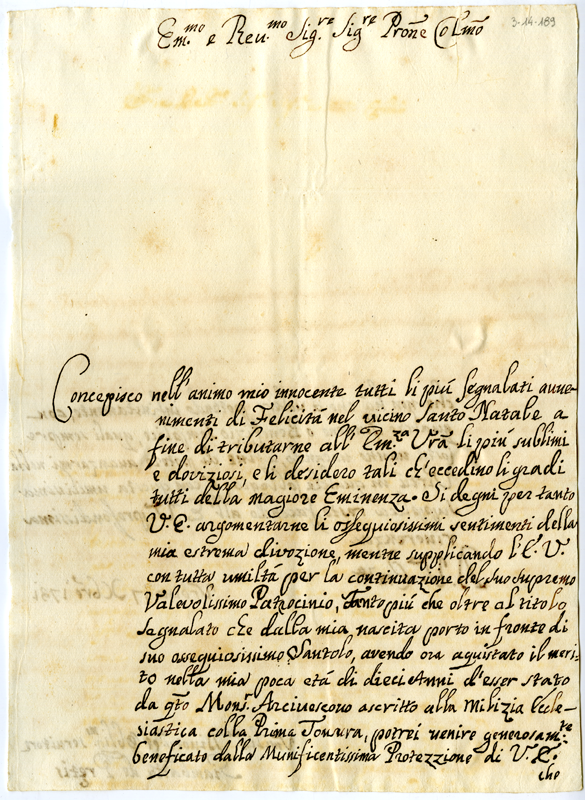 3-14-189
Em.mo e Reu.mo Sig.re Sig.re Prone Colmo
Concepisco nell'animo mio innocente tutti li piú segnalati auue-
nimenti di Felicitá nel vicino Santo Natale a
fine di tributarne all'Em.za Vra li piú sublimi
e doviziosi, e li desidero tali ch'eccedino li gradi
tutti della magiore Eminenza. Si degni per tanto
V.E. argomentarne li osseguiosissimi sentimenti della
mia estrema divozione, mentre supplicando l'E.V.
con tutta umiltá per la continuazione del suo supremo
Valevolissimo Patrocinio, tanto piú che oltre al titolo
segnalato che dalla mia nascita porto in fronte di
suo osseguiosissimo Santolo, avendo ora aquistato il meri-
to nella mia poca etá di dieci Anni d'esser stato
da gto Mons. Arciuescouo ascritto alla Milizia Eccle-
siastica colla Prima Tonsura, potrei venire generosam.te
beneficato dalla Munificentissima Protezzione di V.E.
che